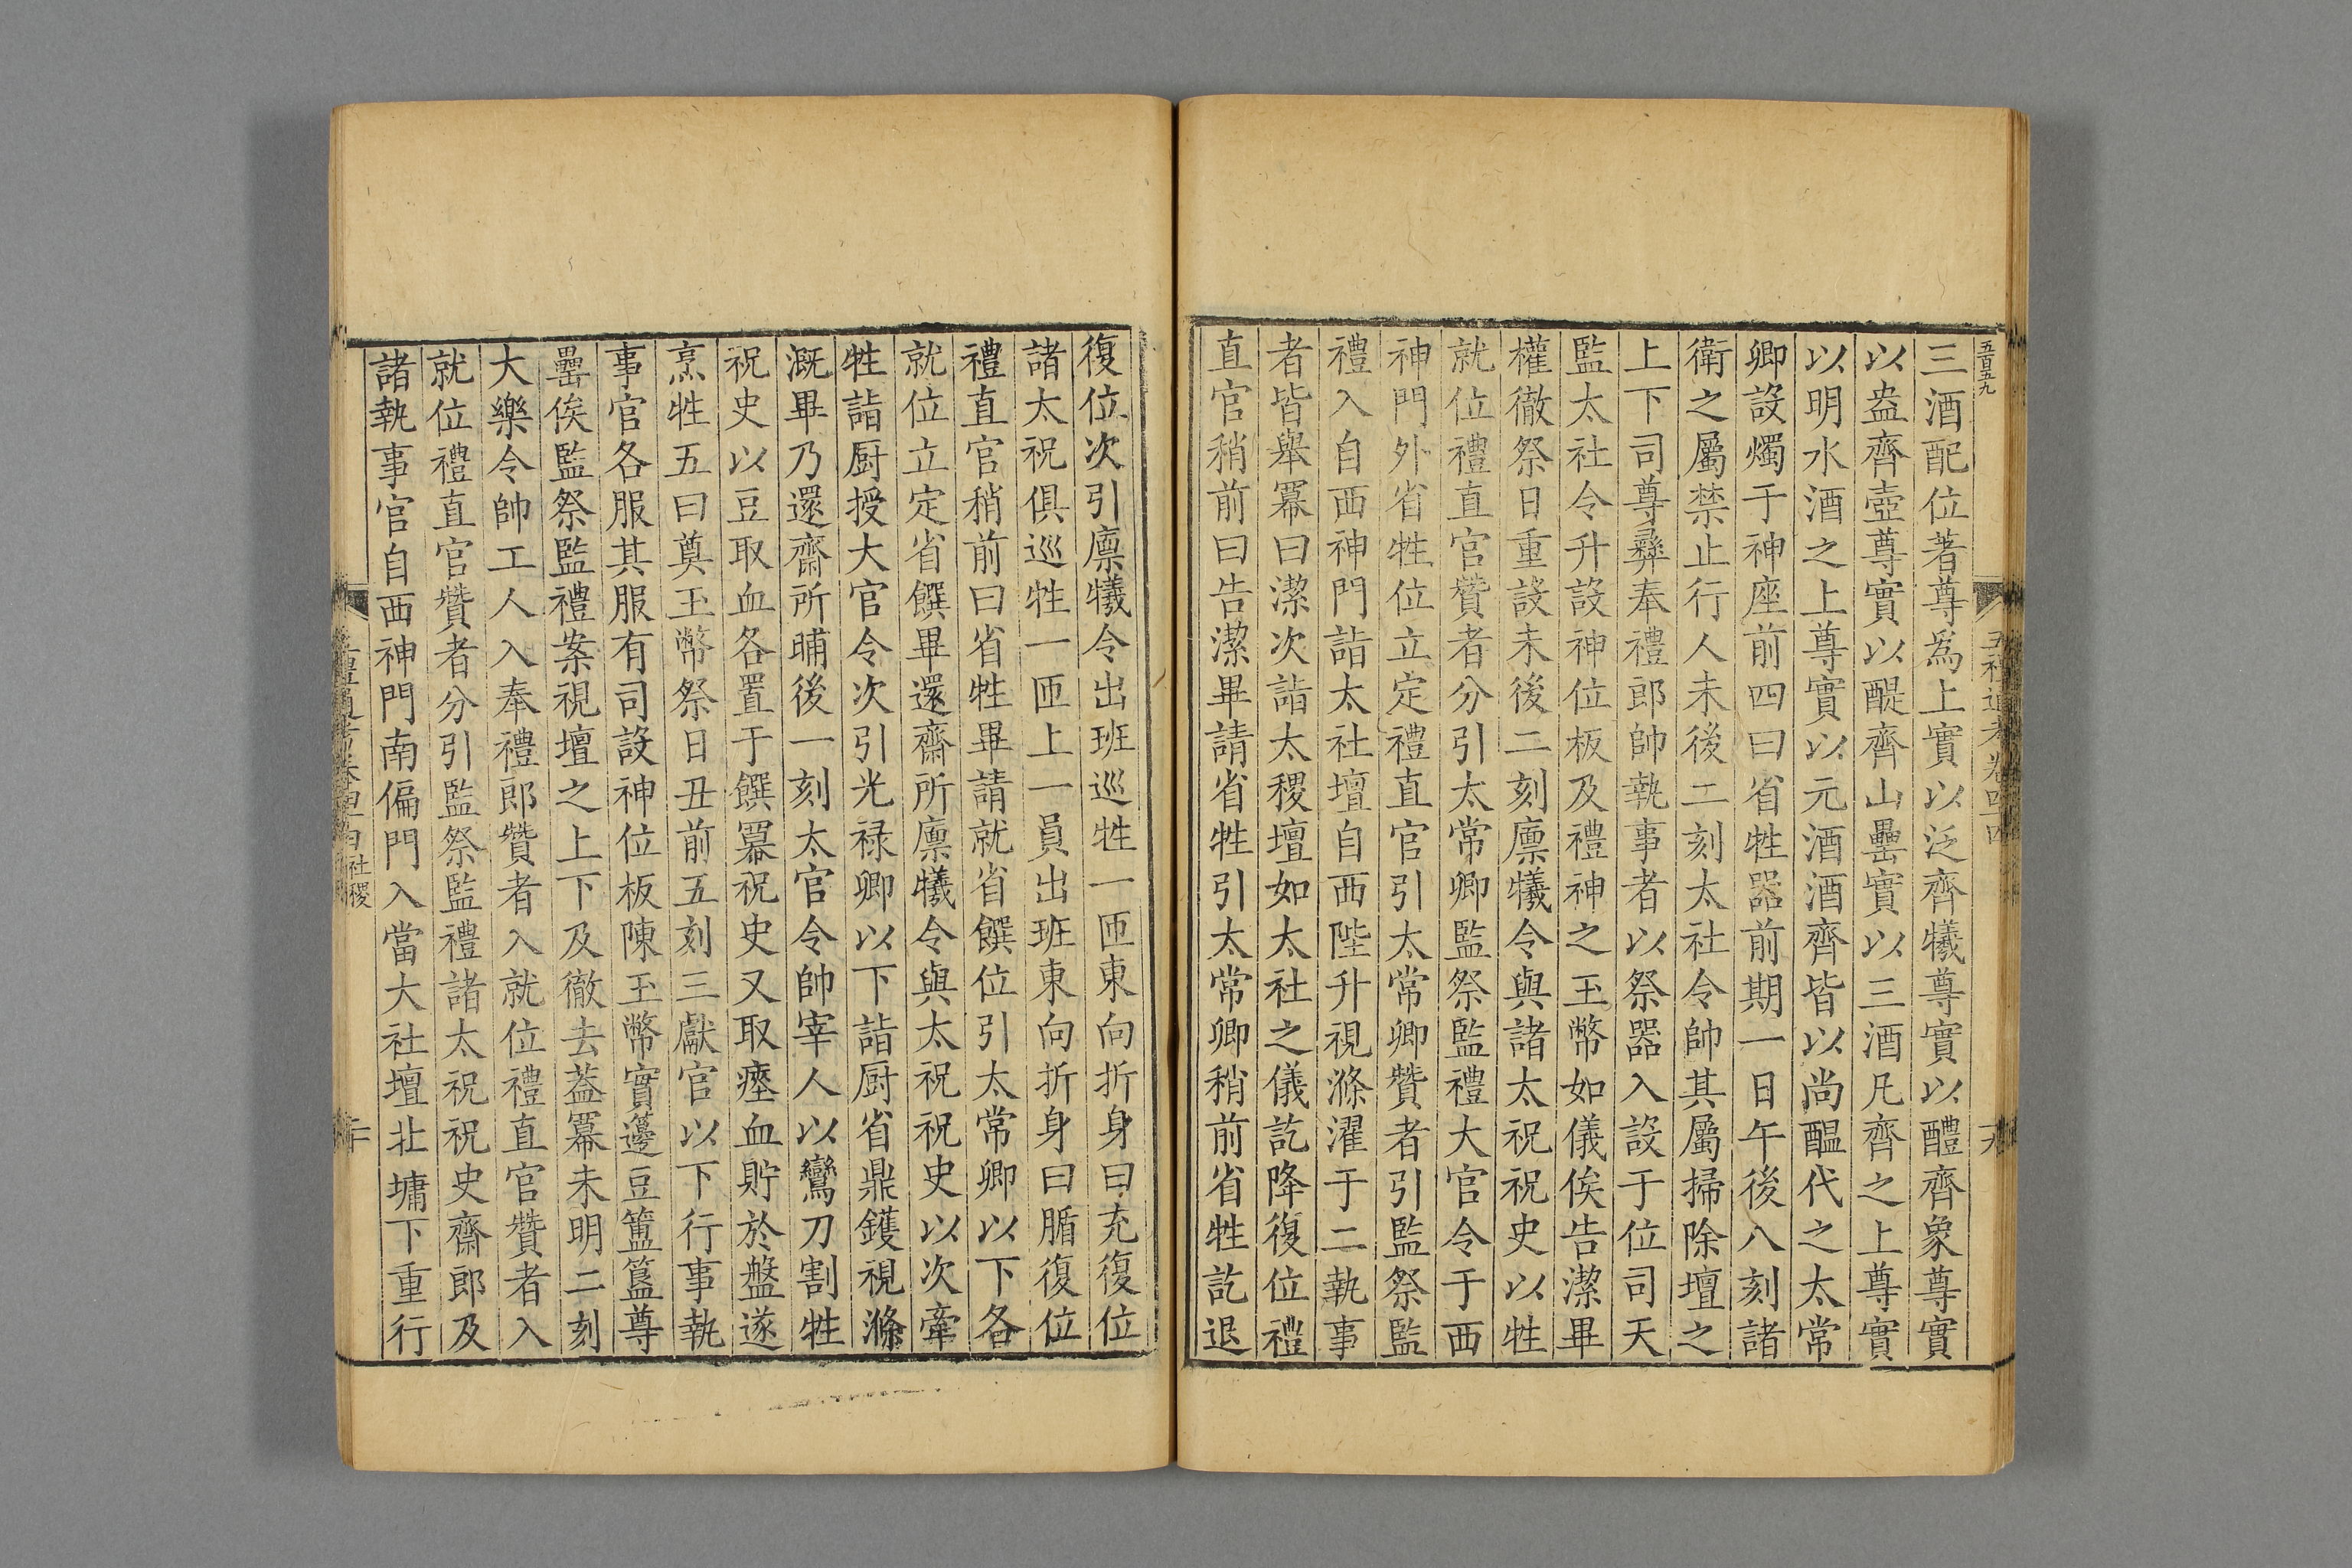 五百五九
三酒配位著尊爲上實以泛齊犧尊實以醴齊象尊實
以盎齊壺尊實以醍齊山罍實以三酒凡齊之上尊實
以明水酒之上尊實以元酒酒齊皆以尚醖代之太常
卿設燭于神座前四曰省牲器前期一日午後八刻諸
衛之屬禁止行人未後二刻太社令帥其屬掃除壇之
上下司尊彝奉禮郎帥執事者以祭器入設于位司天
監太社令升設神位板及禮神之玉幣如儀俟告潔畢
權徹祭日重設未後二刻廪犧令與諸太祝祝史以牲
就位禮直官贊者分引太常卿監祭監禮大官令于西
神門外省牲位立定禮直官引太常卿贊者引監祭監
禮入自西神門詣太社壇自西陛升視滌濯于二執事
者皆舉冪曰潔次詣太稷壇如太社之儀訖降復位禮
直官稍前曰告潔畢請省牲引太常卿稍前省牲訖退
復位次引廪犧令出班巡牲一匝東向折身曰充復位
諸太祝俱巡牲一匝上一員出班東向折身曰腯復位
禮直官稍前曰省牲畢請就省饌位引太常卿以下各
就位立定省饌畢還齋所廪犧令與太祝祝史以次牽
牲詣厨授大官令次引光禄卿以下詣厨省鼎鑊視滌
溉畢乃還齋所晡後一刻太官令帥宰人以鸞刀割牲
祝史以豆取血各置于饌冪祝史又取瘞血貯於盤遂
烹牲五曰奠玉幣祭日丑前五刻三獻官以下行事執
事官各服其服有司設神位板陳玉幣實籩豆簠簋尊
罍俟監祭監禮案視壇之上下及徹去蓋冪未明二刻
大樂令帥工人入奉禮郎贊者入就位禮直官贊者入
就位禮直官贊者分引監祭監禮諸太祝祝史齋郎及
諸執事官自西神門南偏門入當大社壇北墉下重行
社稷